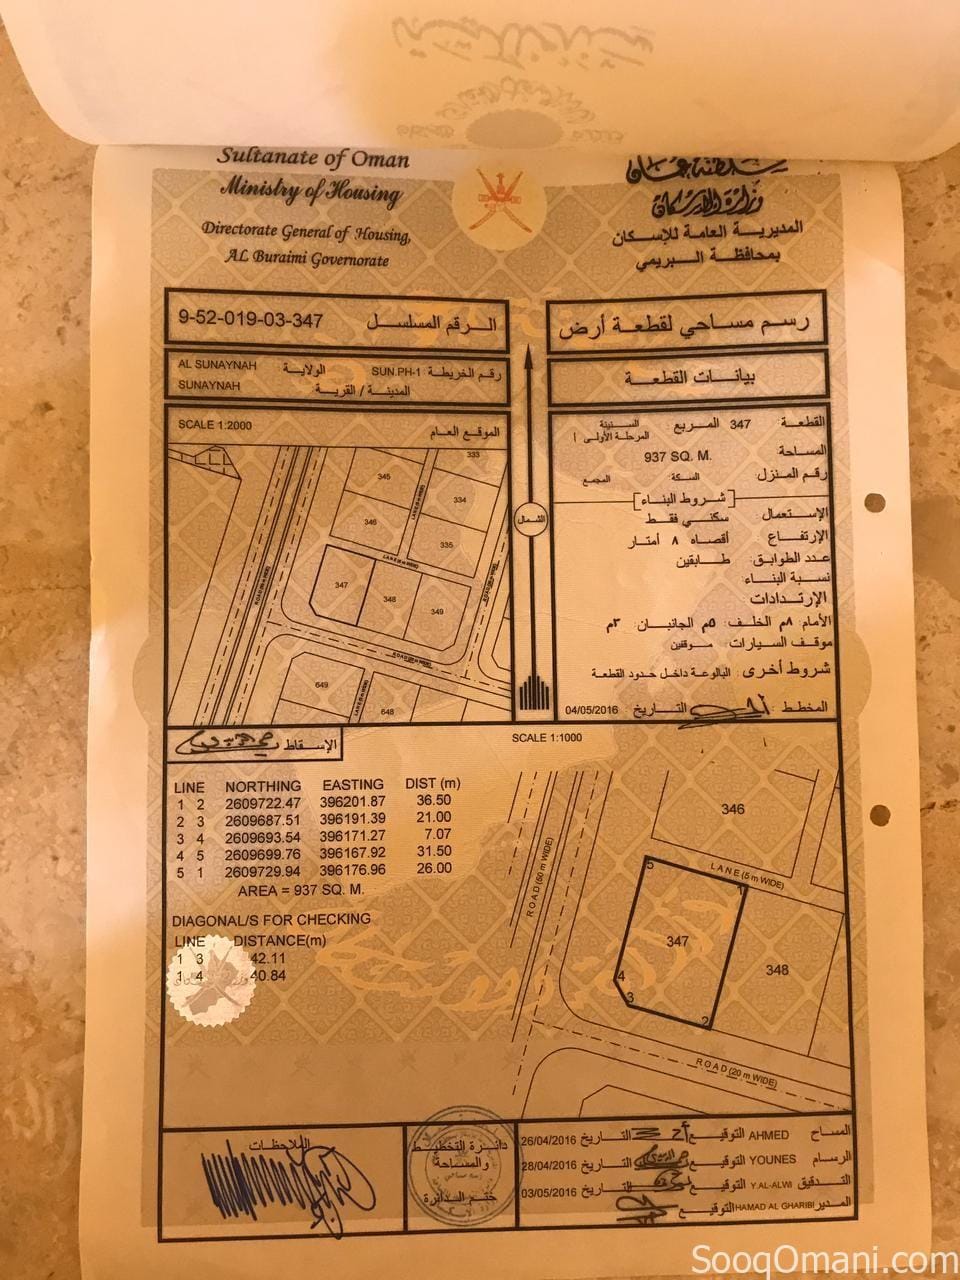 Sultanate of Oman
Ministry of Housing
Directorate General of Housing,
AL Buraimi Governorate
سلطنة عمان
وزارة الإسكان
المديرية العامة للإسكان
بمحافظة البريمي
رسم مساحي لقطعة أرض
الرقم المسلسل 9-52-019-03-347
بيانات القطعة
رقم الخريطة: SUN.PH-1 الولاية AL SUNAYNAH
المدينة / القرية: SUNAYNAH
القطعة: 347 المربع السنينة المرحلة الأولى أ
المساحة: 937 SQ. M.
رقم المنزل: السكة: المجمع
شروط البناء
الإستعمال سكني فقط
الإرتفاع أقصاه ٨ أمتار
عدد الطوابق: طابقين
نسبة البناء:
الإرتدادات
الأمام: ٨م الخلف: ٥م الجانبان: ٣م
موقف السيارات: موقفين
شروط أخرى: البالوعة داخل حدود القطعة
المخطط: التاريخ: 04/05/2016
SCALE 1:2000
الموقع العام
333
345
LANE (5 m WIDE)
334
346
335
LANE (5 m WIDE)
347
348
349
ROAD (50 m WIDE)
ROAD (20 m WIDE)
649
648
LANE (5 m WIDE)
الشمال
الإسقاط
SCALE 1:1000
LINE NORTHING EASTING DIST (m)
1 2 2609722.47 396201.87 36.50
2 3 2609687.51 396191.39 21.00
3 4 2609693.54 396171.27 7.07
4 5 2609699.76 396167.92 31.50
5 1 2609729.94 396176.96 26.00
AREA = 937 SQ. M.
DIAGONAL/S FOR CHECKING
LINE DISTANCE(m)
1 3 42.11
1 4 40.84
346
LANE (5 m WIDE)
ROAD (50 m WIDE)
5
1
347
348
4
3
2
ROAD (20 m WIDE)
الملاحظات
دائرة التخطيط
والمساحة
ختم الدائرة
المساح AHMED التوقيع التاريخ 26/04/2016
الرسام YOUNES التوقيع التاريخ 28/04/2016
التدقيق Y.AL-ALWI التوقيع التاريخ 03/05/2016
المدير HAMAD AL GHARIBI التوقيع
SooqOmani.com